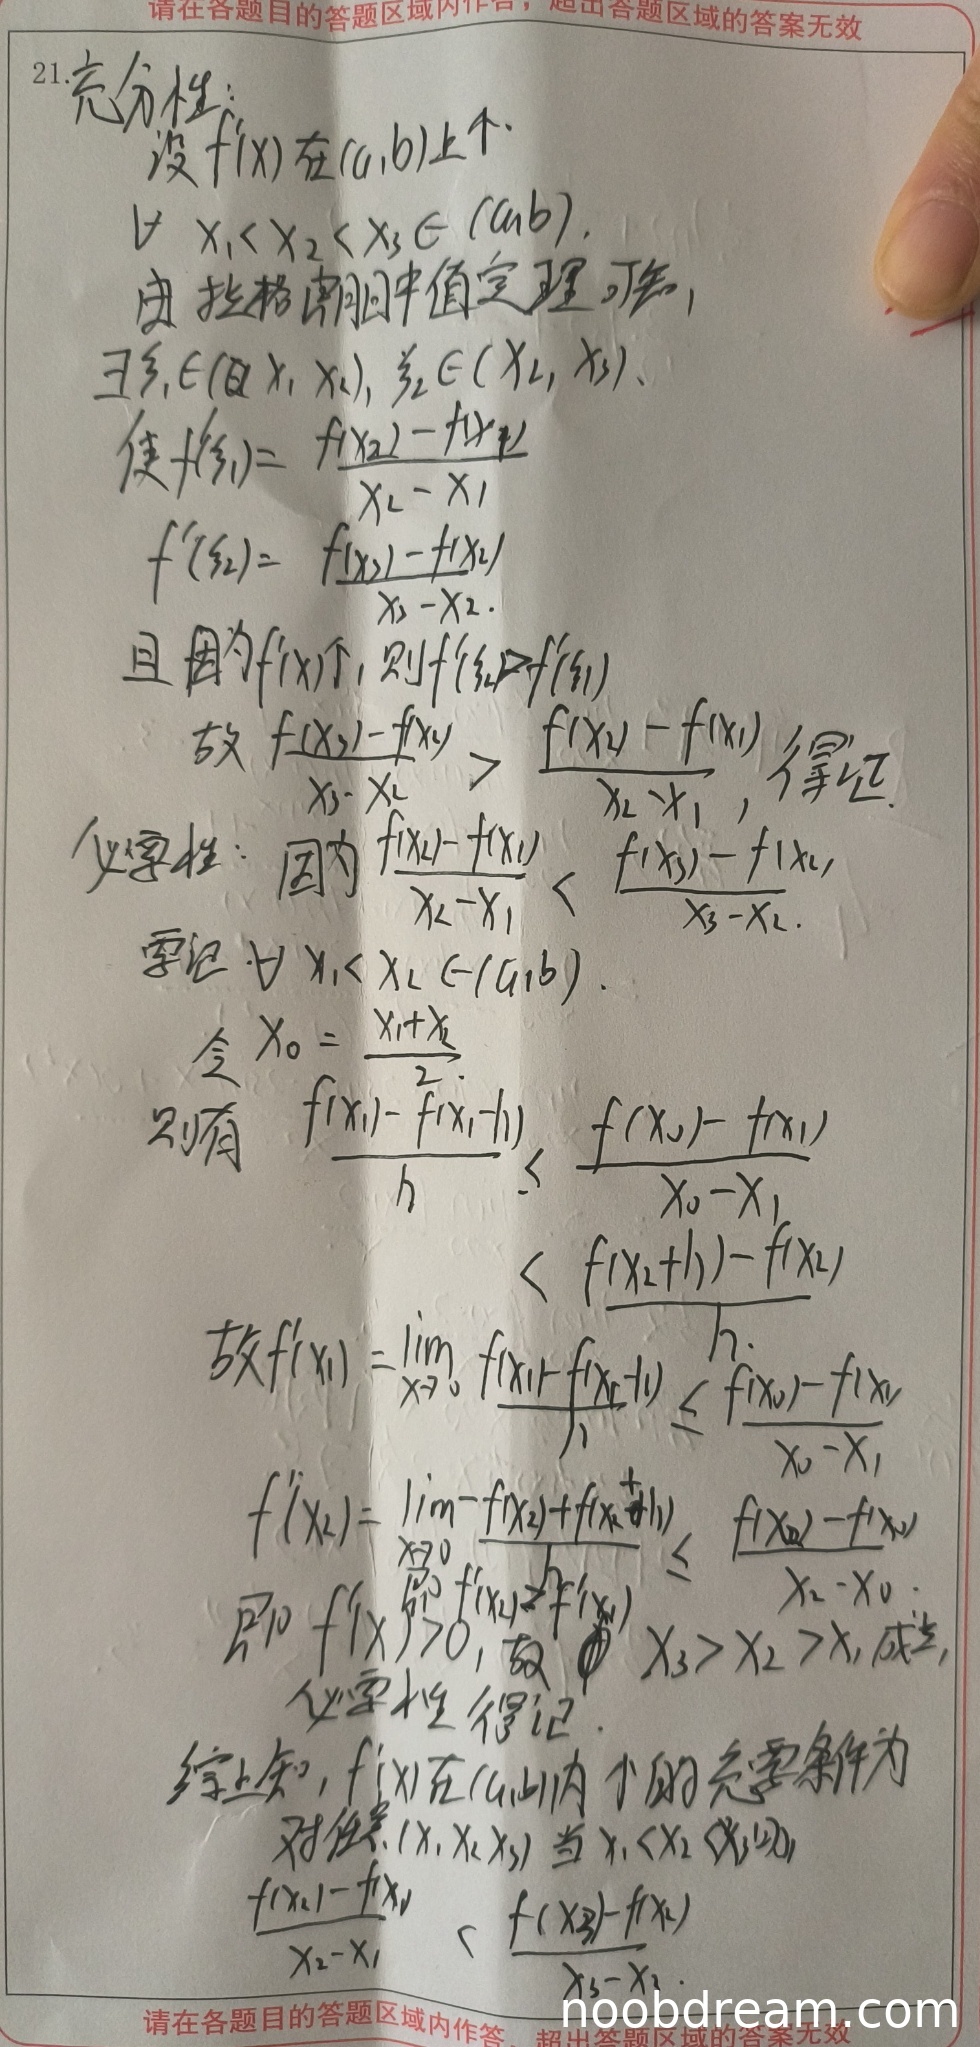 请在各题目的答题区域内作答，超出答题区域的答案无效
21. 充分性：
设 f'(x) 在 (a,b) 上↑.
∀ x₁<x₂<x₃∈(a,b).
由拉格朗日中值定理可知,
∃ξ₁∈(x₁ x₂), ξ₂∈(x₂, x₃).
使 f'(ξ₁)= f(x₂)-f(x₁) / x₂-x₁
f'(ξ₂)= f(x₃)-f(x₂) / x₃-x₂.
且因为f'(x)↑, 则f'(ξ₂)>f'(ξ₁)
故 f(x₃)-f(x₂) / x₃-x₂ > f(x₂)-f(x₁) / x₂-x₁, 得证.
必要性: 因为 f(x₂)-f(x₁) / x₂-x₁ < f(x₃)-f(x₂) / x₃-x₂.
∀ x₁<x₂∈(a,b).
令 x₀ = x₁+x₂ / 2.
则有 f(x₁)-f(x₁-h) / h ≤ f(x₀)-f(x₁) / x₀-x₁
< f(x₂+h)-f(x₂) / h.
故f'(x₁) = lim x→0 f(x₁)-f(x₁-h) / h ≤ f(x₀)-f(x₁) / x₀-x₁
f'(x₂)= lim x→0 -f(x₂)+f(x₂+h) / h ≤ f(x₂)-f(x₀) / x₂-x₀.
即 f'(x₂)≥f'(x₁)
即 f'(x)>0, 故 x₃>x₂>x₁ 成立,
必要性得证.
综上知, f'(x)在(a,b)内↑的充要条件为
对任意(x₁ x₂ x₃) 当 x₁<x₂<x₃时,
f(x₂)-f(x₁) / x₂-x₁ < f(x₃)-f(x₂) / x₃-x₂.
noobdream.com
请在各题目的答题区域内作答，超出答题区域的答案无效